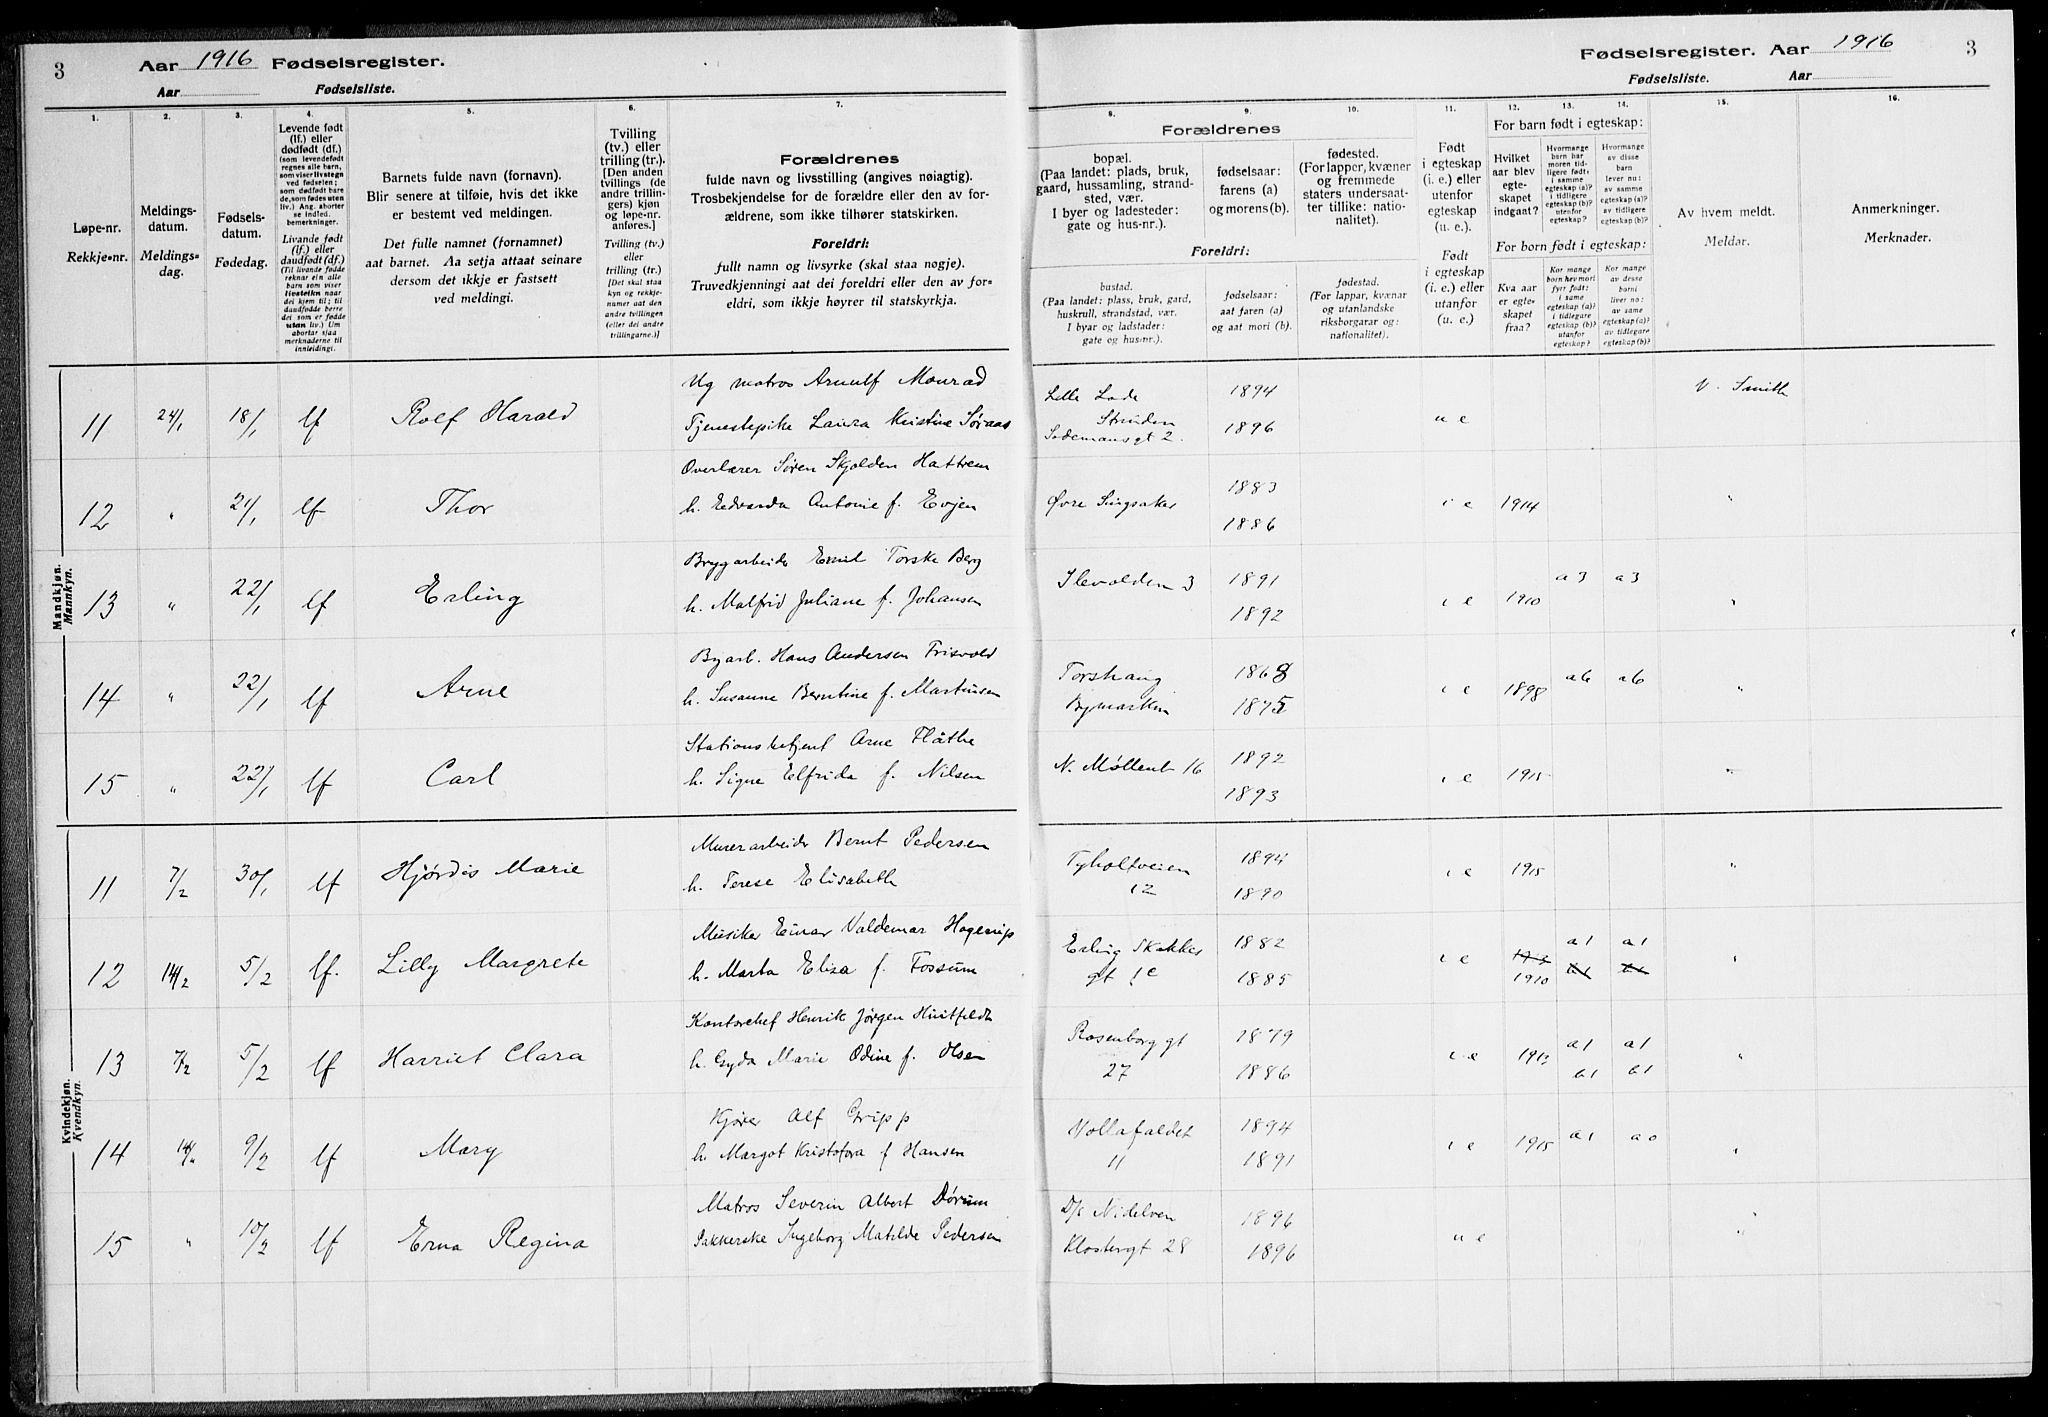 3 Aar 1916 Fødselsregister.
Aar Fødselsliste.
Fødselsregister. Aar 1916 3
Fødselsliste. Aar
1. 2. 3. 4. 5. 6. 7. 8. 9. 10. 11. 12. 13. 14. 15. 16.
Løpe-nr.
Rekkje-nr.
Meldings-
datum.
Meldings-
dag.
Fødsels-
datum.
Fødedag.
Levende født
(lf.) eller
dødfødt (df.)
(som levendefødt
regnes alle barn,
som viser livstegn
ved fødselen;
som dødfødt bare
de, som fødes uten
liv.) Ang. aborter
se indled.
bemerkninger.
Livande født
(lf.) eller
daudfødt (df.)
(Til livande fødde
reknar ein alle
born som viser
livsteikn naar
dei kjem til; til
daudfødde berre
dei som er fødde
utan liv.) Um
abortar sjaa
merknaderne til
innleidingi.
Barnets fulde navn (fornavn).
Blir senere at tilføie, hvis det ikke
er bestemt ved meldingen.
Det fulle namnet (fornamnet)
aat barnet. Aa setja attaat seinare
dersom det ikkje er fastsett
ved meldingi.
Tvilling
(tv.) eller
trilling (tr.).
[Den anden
tvillings (de
andre trillin-
gers) kjøn
og løpe-nr.
anføres.]
Tvilling (tv.)
eller
trilling (tr.)
[Det skal staa
kyn og rekkje-
numer aat den
andre tvillingen
(eller dei andre
trillingarne.)]
Forældrenes
fulde navn og livsstilling (angives nøiagtig).
Trosbekjendelse for de forældre eller den av for-
ældrene, som ikke tilhører statskirken.
Foreldri:
fullt namn og livsyrke (skal staa nøgje).
Truvedkjenningi aat dei foreldri eller den av for-
eldri, som ikkje høyrer til statskyrkja.
Forældrenes
bopæl.
(Paa landet: plads, bruk,
gaard, hussamling, strand-
sted, vær.
I byer og ladesteder:
gate og hus-nr.).
fødselsaar:
farens (a)
og morens (b).
fødested.
(For lapper, kvæner
og fremmede
staters undersaat-
ter tillike: natio-
nalitet).
Foreldri:
bustad.
(Paa landet: plass, bruk, gard,
huskrull, strandstad, vær.
I byar og ladstader:
gate og hus-nr.).
fødselsaar:
aat faren (a)
og aat mori (b).
fødestad.
(For lappar, kvænar
og utanlandske
riksborgarar og:
nationalitet).
Født
i egteskap
(i. e.) eller
utenfor
egteskap
(u. e.).
Født
i egteskap
(i. e.) eller
utanfor
(u. e.)
For barn født i egteskap:
Hvilket
aar blev
egte-
skapet
indgaat?
Hvormange
barn har
moren tid-
ligere født:
i samme
egteskap (a)?
i tidligere
egteskap (b)?
utenfor
egteskap?
Hvormange
av disse
barn
lever nu:
av samme
egteskap (a)?
av tidligere
egteskap (b)?
For born født i egteskap:
Kva aar
er egte-
skapet
fraa?
Kor mange
born hev mori
fyrr født:
i same
egteskap (a)?
i tidlegare
egteskap (b)?
utanfor
egteskap?
Kor mange
av desse
borni
liver no:
av same
egteskap (a)?
av tidlegare
egteskap (b)?
Av hvem meldt.
Meldar.
Anmerkninger.
Merknader.
Mandkjøn.
Mannkyn.
Ug matros Arnulf Monrad Lille Lade 1894 V. Smith
11 24/1 18/1 lf Rolf Harald Tjenestepike Laura Kristine Søraas Strinden Sodemansgt 2. 1896 u e
Overlærer Søren Skjolden Hattrem 1883
12 " 21/1 lf Thor h. Edvarda Antonie f. Evjen Øvre Singsaker 1886 i e 1914 "
Brygarbeider Emil Torske Berg Ilevolden 3 1891 a 3 a 3
13 " 22/1 lf Erling h. Malfrid Juliane f. Johansen 1892 i e 1910 "
Byarb. Hans Andersen Trisvold Torshaug 1868 a 6 a 6
14 " 22/1 lf Arne h. Susanne Berntine f. Martinsen Bymarken 1875 i e 1898 "
Stationsbetjent Arne Flåthe 1892
15 " 22/1 lf Carl h. Signe Elfrida f. Nilsen N. Møllenb 16 1893 i e 1915 "
Kvindekjøn.
Kvendkyn.
Murerarbeider Bernt Pedersen Tyholtveien 1894
11 7/2 30/1 lf Hjørdis Marie h. Terese Elisabeth 12 1890 i e 1915 "
Musiker Einar Valdemar Hagerup Erling Skakkes 1882 a 1 a 1
12 14/2 5/2 lf. Lilly Margrete h. Marta Eliza f. Fossum gt 1c 1885 i e 1910 "
Kontorchef Henrik Jørgen Huitfeldt Rosenborg gt 1879 a 1 a 1
13 7/2 5/2 lf Harriet Clara h. Gyda Marie Odine f. Olsen 27 1886 i e 1912 b 1 b 1 "
Kjører Alf Gripp Vollafaldet 1894 a 1 a 0
14 14/" 9/2 lf Mary h. Margot Kristofora f Hansen 11 1891 i e 1915 "
Matros Severin Albert Dørum D/s Nidelven 1896
15 " 10/2 lf Erna Regina Pakkerske Ingeborg Matilde Pedersen Klostergt 28 1896 u e "